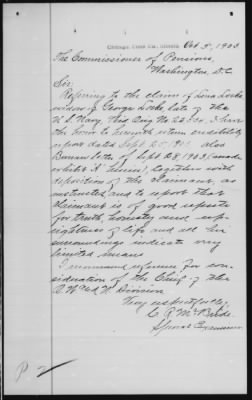 Chicago, Cook Co., Illinois Oct 5, 1903
The Commissioner of Pensions,
Washington, D.C.
Sir:
Referring to the claim of Lena Locke
widow of George Locke, late of the
U.S. Navy, Wid. Orig. No 22.
the honor to herewith return
report dated Sept. 25, 1903, also
Bureau letter of Sept 28, 1903 (made
exhibit "A" herein), together with
deposition of the claimant as
instructed, and to report that
claimant is of good repute
for truth, honesty and up-
rightness of life and all her
surroundings indicate very
limited means.
I recommend reference for con-
sideration of the Chief of the
Division
Very respectfully,
C. R. McBride
Special Examiner
P 2